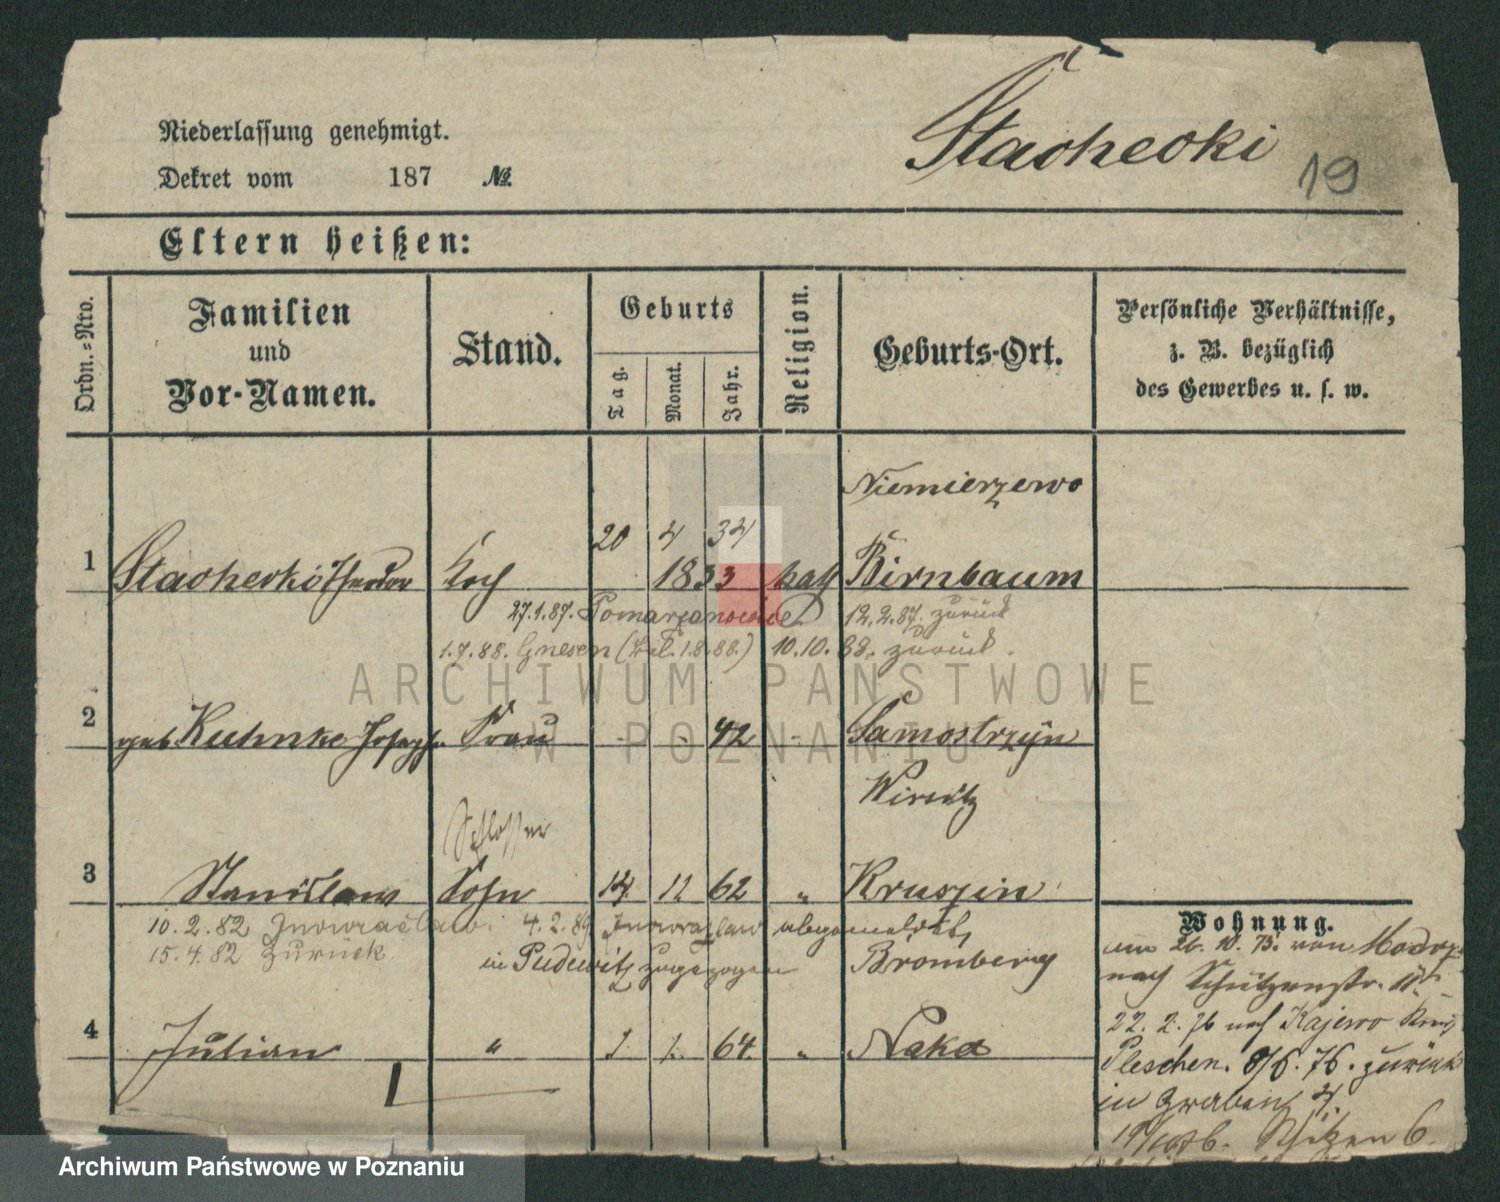 Niederlassung genehmigt.
Dekret vom 187 №
Stachecki
19
Eltern heißen:
Ordn.=Nro.
Familien
und
Vor-Namen.
Stand.
Geburts
Tag.
Monat.
Jahr.
Religion.
Geburts-Ort.
Persönliche Verhältnisse,
z. B. bezüglich
des Gewerbes u. s. w.
Niemierzewo
20 4 34
1 Stachecki Theodor Koch 1833 kath Birnbaum
27.1.87. Pomarzanowice 12.2.87. zurück
1.7.88. Gnesen ( 1.8.88.) 10.10.88. zurück.
ARCHIWUM PAŃSTWOWE
W POZNANIU
2 geb Kuhnke Frau - - 42 - Samostrzyn
Wirsitz
Schlosser
3 Stanislaw Sohn 14. 11 62 " Kruszin
10.2.82 Inowraclaw. 4.2.89 Inowrazlaw abgemeldet,
15.4.82 Zurück.
in Pudewitz zugezogen Bromberg
4 Julian " 1. 1. 64 " Nakel
Wohnung.
26. 10. 73. von
nach Schützenstr.
22. 2. 76 nach Kajewo Kreis
Pleschen. 8/6. 76. zurück
in Graben 4.
Schützen 6.
Archiwum Państwowe w Poznaniu